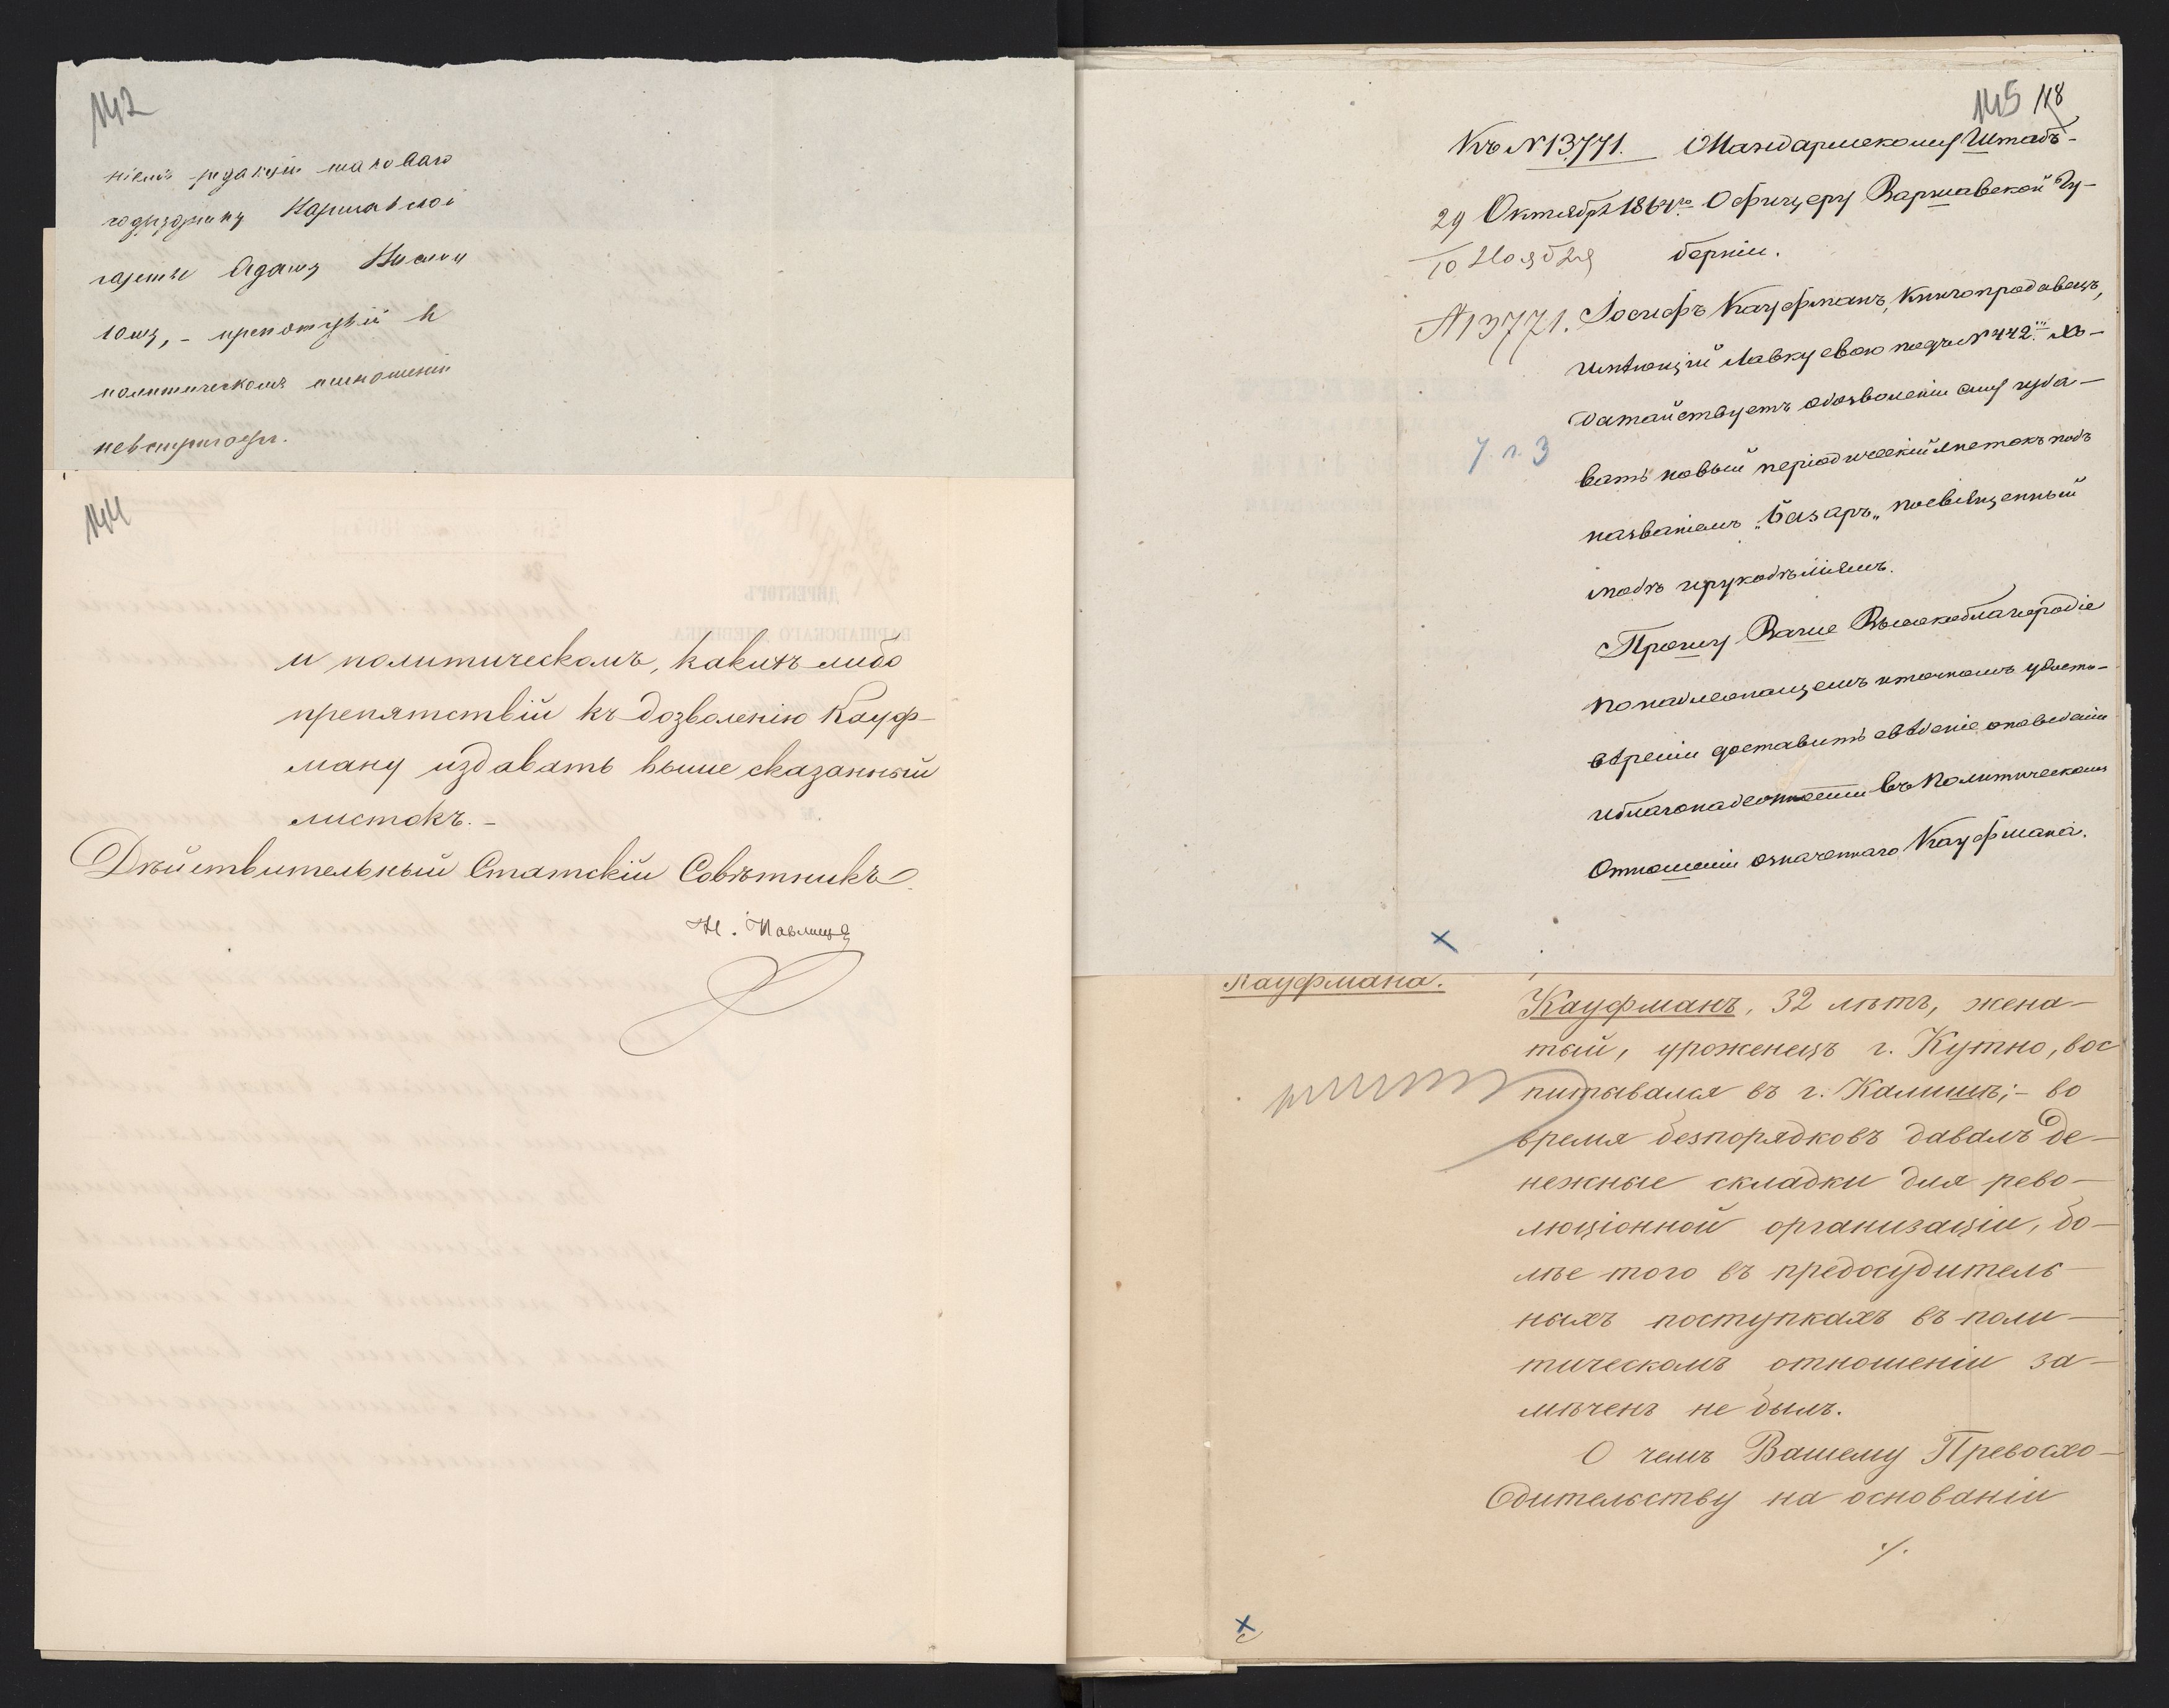 142
ніемъ редакціи таковаго
Варшавской
газеты Адаму
10му, - препятствій в
политическомъ отношеніи
невстрѣчаетъ.
144
и политическомъ, какихъ либо
препятствій къ дозволенію Кауф-
ману издавать выше сказанный
листокъ. -
Дѣйствительный Статскій Совѣтникъ
Н. Павлищев
145 118
Къ N 13771. Жандармскому Штабъ-
29 Октября 1864го Офицеру Варшавской Гу-
10 Ноября берніи.
N 13771. Іосифъ Кауфманъ, Книгопродавецъ,
имѣющій Лавку свою подъ N 442мъ хо-
датайствуетъ о дозволеніи ему изда-
вать новый періодическій листокъ подъ
названіемъ „Базаръ„ посвѣщенный
модѣ и рукодѣліямъ.
Прошу Ваше Высокоблагородіе
по надлежащемъ и точномъ удосто-
вѣреніи доставить свѣденіе о поведеніи
и благонадежности въ Политическомъ
Отношеніи означеннаго Кауфмана.
Кауфмана.
Кауфманъ, 32 лѣтъ, жена-
тый, уроженецъ г. Кутно, вос
питывался въ г. Калишѣ; - во
время безпорядковъ давалъ де-
нежные складки для рево-
люціонной организаціи, бо-
лѣе того въ предосудитель-
ныхъ поступкахъ въ поли-
тическомъ отношеніи за-
мѣченъ не былъ.
О чемъ Вашему Превосхо-
дительству на основаніи
./.